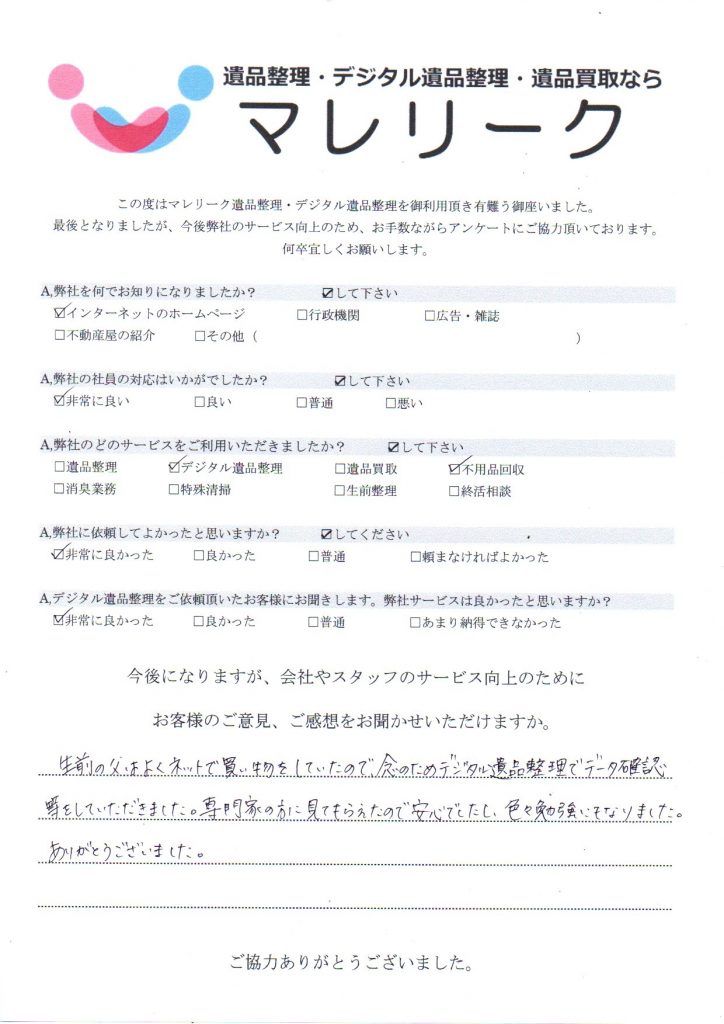 遺品整理・デジタル遺品整理・遺品買取なら
マレリーク
この度はマレリーク遺品整理・デジタル遺品整理を御利用頂き有難う御座いました。
最後となりましたが、今後弊社のサービス向上のため、お手数ながらアンケートにご協力頂いております。
何卒宜しくお願いします。
A,弊社を何でお知りになりましたか？ ☑して下さい
☑インターネットのホームページ □行政機関 □広告・雑誌
□不動産屋の紹介 □その他（ ）
A,弊社の社員の対応はいかがでしたか？ ☑して下さい
☑非常に良い □良い □普通 □悪い
A,弊社のどのサービスをご利用いただきましたか？ ☑して下さい
□遺品整理 ☑デジタル遺品整理 □遺品買取 ☑不用品回収
□消臭業務 □特殊清掃 □生前整理 □終活相談
A,弊社に依頼してよかったと思いますか？ ☑してください
☑非常に良かった □良かった □普通 □頼まなければよかった
A,デジタル遺品整理をご依頼頂いたお客様にお聞きします。弊社サービスは良かったと思いますか？
☑非常に良かった □良かった □普通 □あまり納得できなかった
今後になりますが、会社やスタッフのサービス向上のために
お客様のご意見、ご感想をお聞かせいただけますか。
生前の父はよくネットで買い物をしていたので、念のためデジタル遺品整理でデータ確認
等をしていただきました。専門家の方に見てもらえたので安心でしたし、色々勉強にもなりました。
ありがとうございました。
ご協力ありがとうございました。